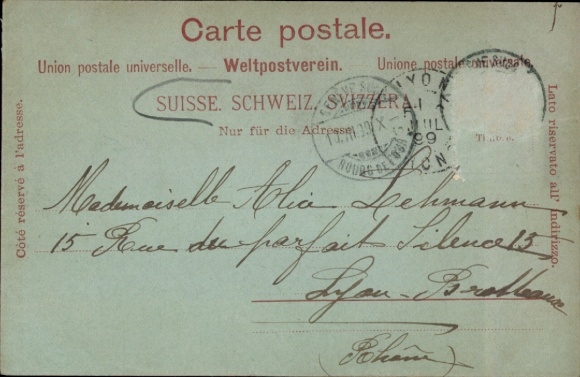 Carte postale.
Union postale universelle. — Weltpostverein. Unione postale universale.
SUISSE. SCHWEIZ. SVIZZERA.
Nur für die Adresse.
Côté réservé à l'adresse.
Lato riservato all' indirizzo.
LYO
JUL
99
Mademoiselle Alice Lehmann
15 Rue du parfait Silence 15
Lyon-Brotteaux
(Rhône)